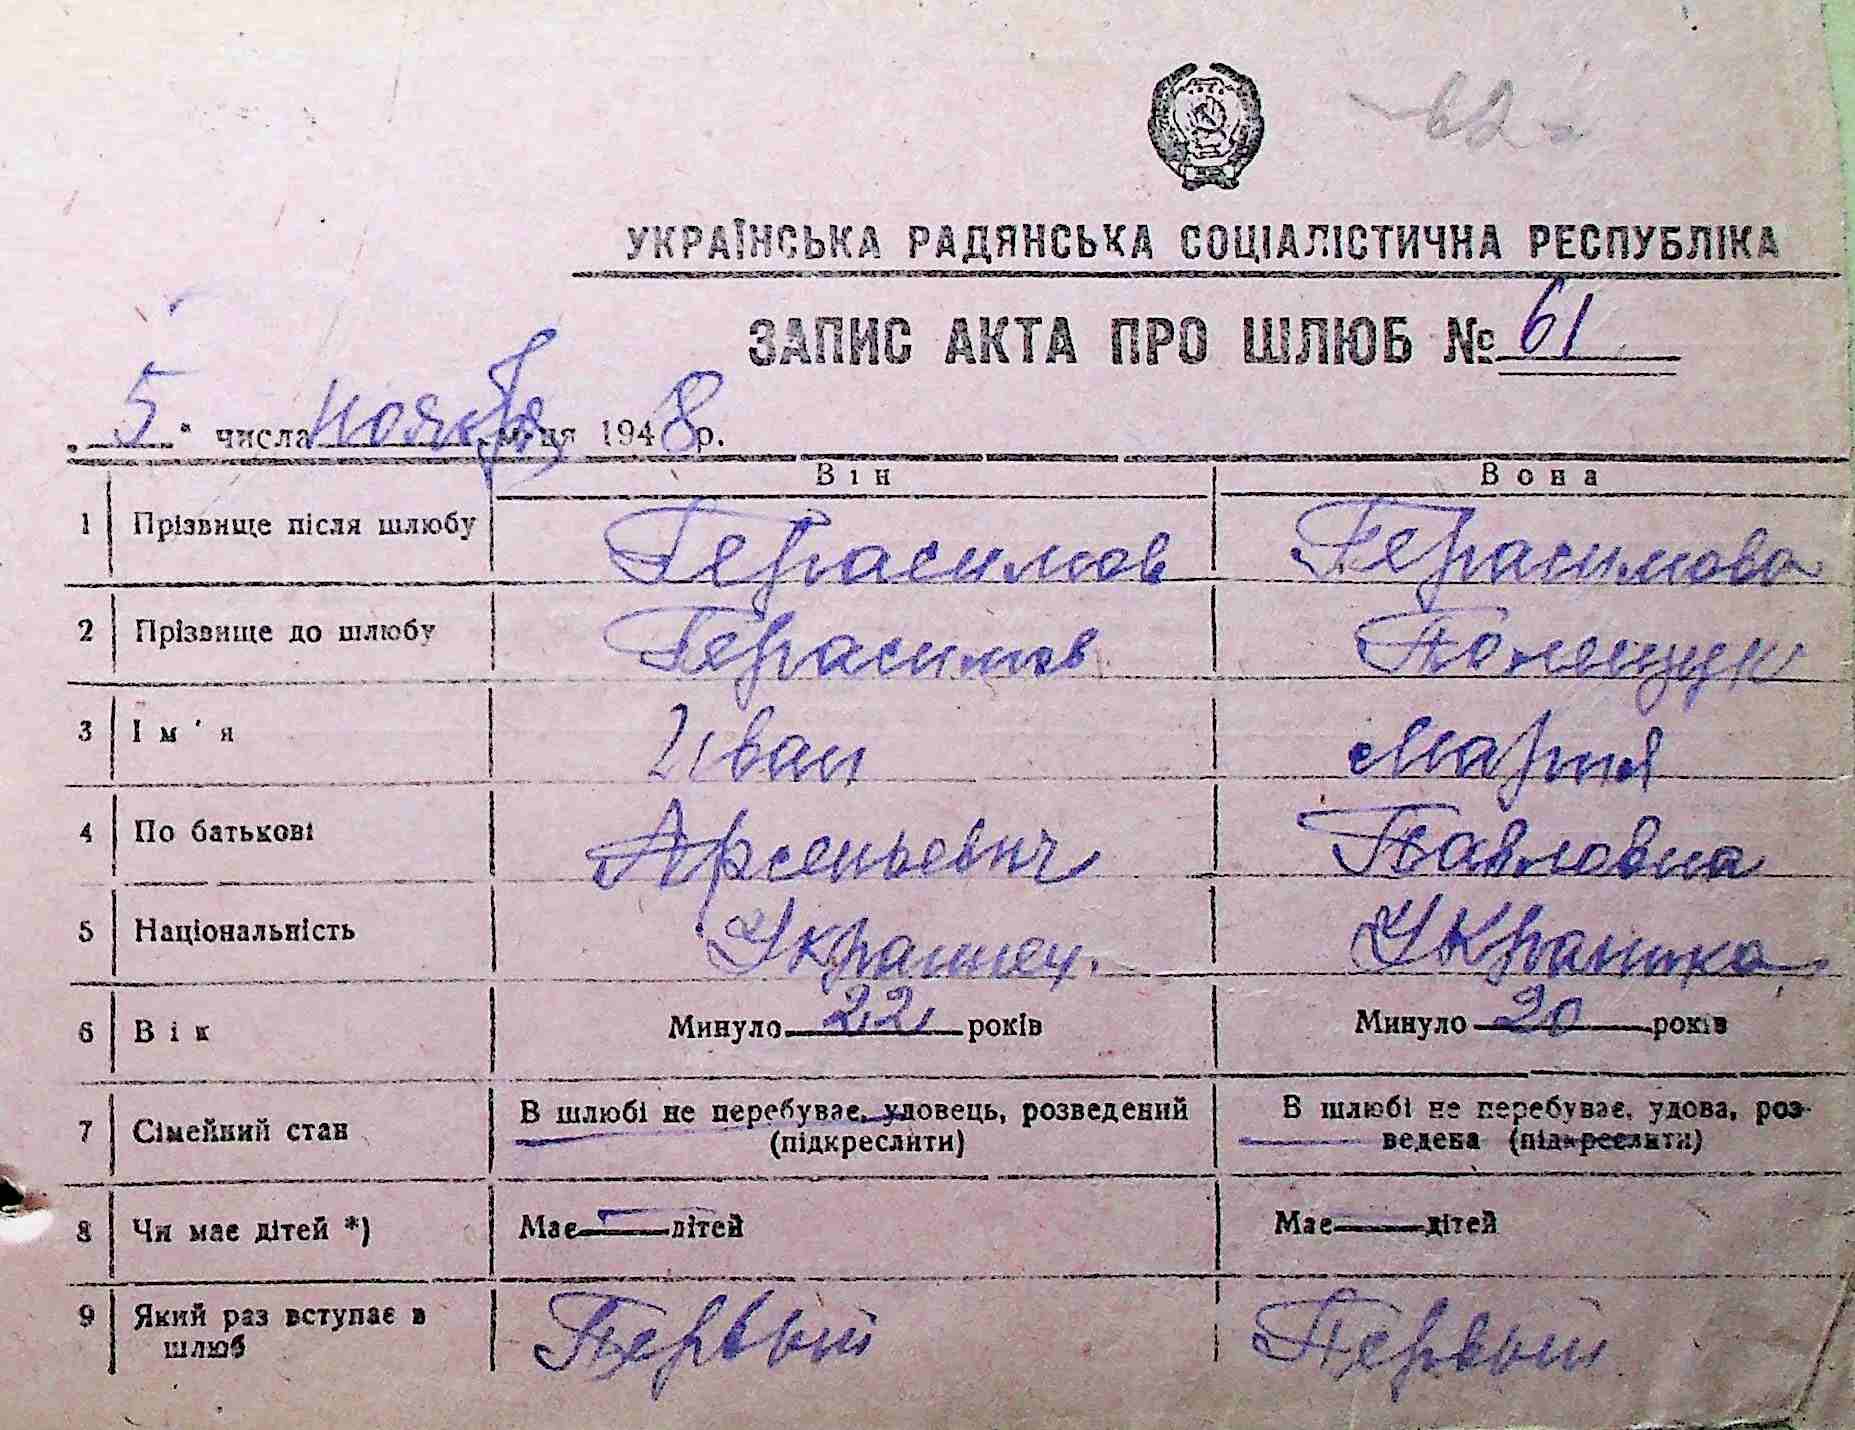 62
УКРАЇНСЬКА РАДЯНСЬКА СОЦІАЛІСТИЧНА РЕСПУБЛІКА
ЗАПИС АКТА ПРО ШЛЮБ № 61
„ 5 " числа ноября м-ця 1948 р.
Він Вона
1 Прізвище після шлюбу Герасимов Герасимова
2 Прізвище до шлюбу Герасимов Полещук
3 Ім'я Иван Мария
4 По батькові Арсеньевич Павловна
5 Національність Украинец. Украинка
6 Вік Минуло 22 років Минуло 20 років
7 Сімейний стан В шлюбі не перебуває, удовець, розведений (підкреслити) В шлюбі не перебуває, удова, роз-
ведена (підкреслити)
8 Чи має дітей *) Має — дітей Має — дітей
9 Який раз вступає в шлюб Первый Первый